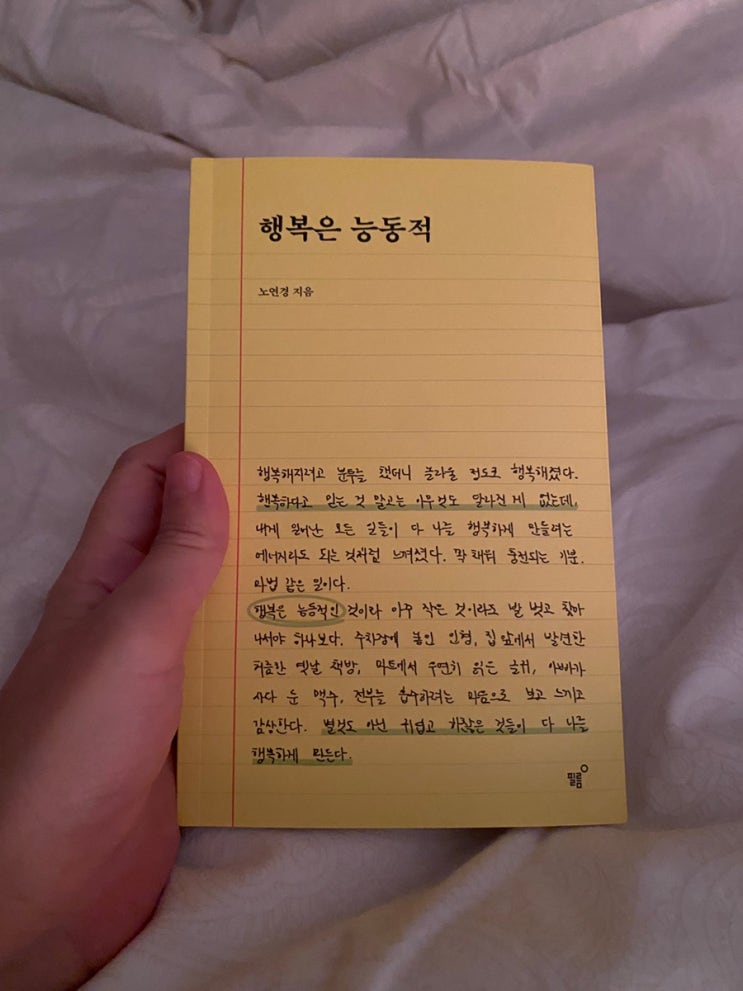 행복은 능동적
노연경 지음
행복해지려고 분투를 했더니 놀라울 정도로 행복해졌다.
행복하다고 믿는 것 말고는 아무것도 달라진 게 없는데,
내게 일어난 모든 일들이 다 나를 행복하게 만들려는
에너지라도 되는 것처럼 느껴졌다. 꽉 채워 충전되는 기분.
마법 같은 일이다.
행복은 능동적인 것이라 아주 작은 것이라도 발 벗고 찾아
나서야 하나보다. 주차장에 놓인 인형, 집 앞에서 발견한
허름한 옛날 책방, 마트에서 우연히 읽은 글귀, 아빠가
사다 둔 맥주, 전부를 흡수하려는 마음으로 보고 느끼고
감상한다. 별것도 아닌 귀엽고 하찮은 것들이 다 나를
행복하게 만든다.
필름